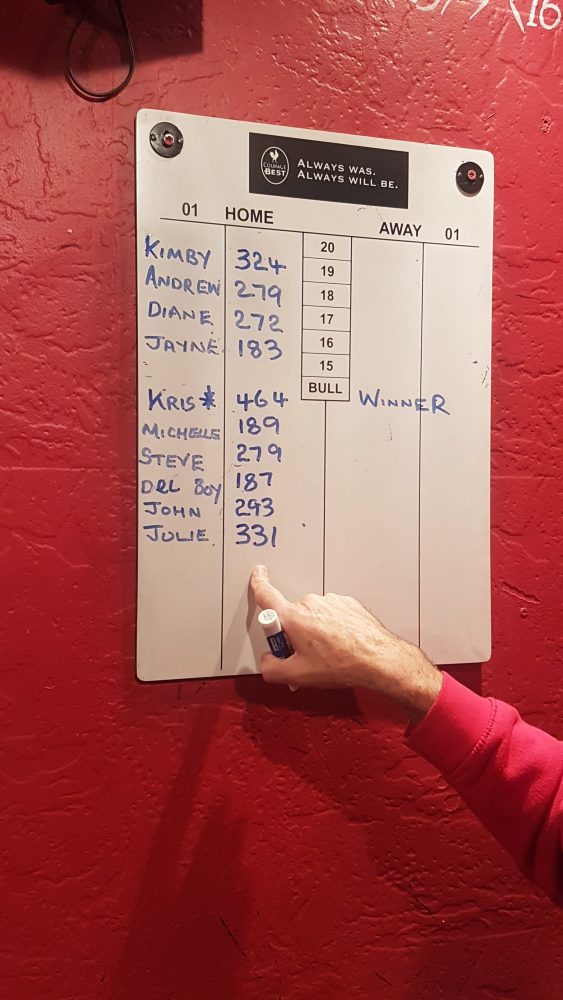 COURAGE
BEST
ALWAYS WAS.
ALWAYS WILL BE.
01 HOME AWAY 01
20
19
18
17
16
15
BULL
KIMBY 324
ANDREW 279
DIANE 272
JAYNE 183
KRIS* 464 WINNER
MICHELLE 189
STEVE 279
DEL BOY 187
JOHN 293
JULIE 331